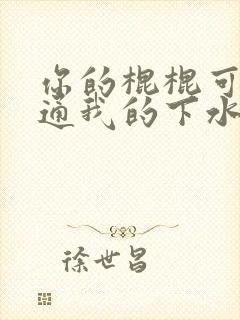 你的棍棍可
通我的下水
徐世昌